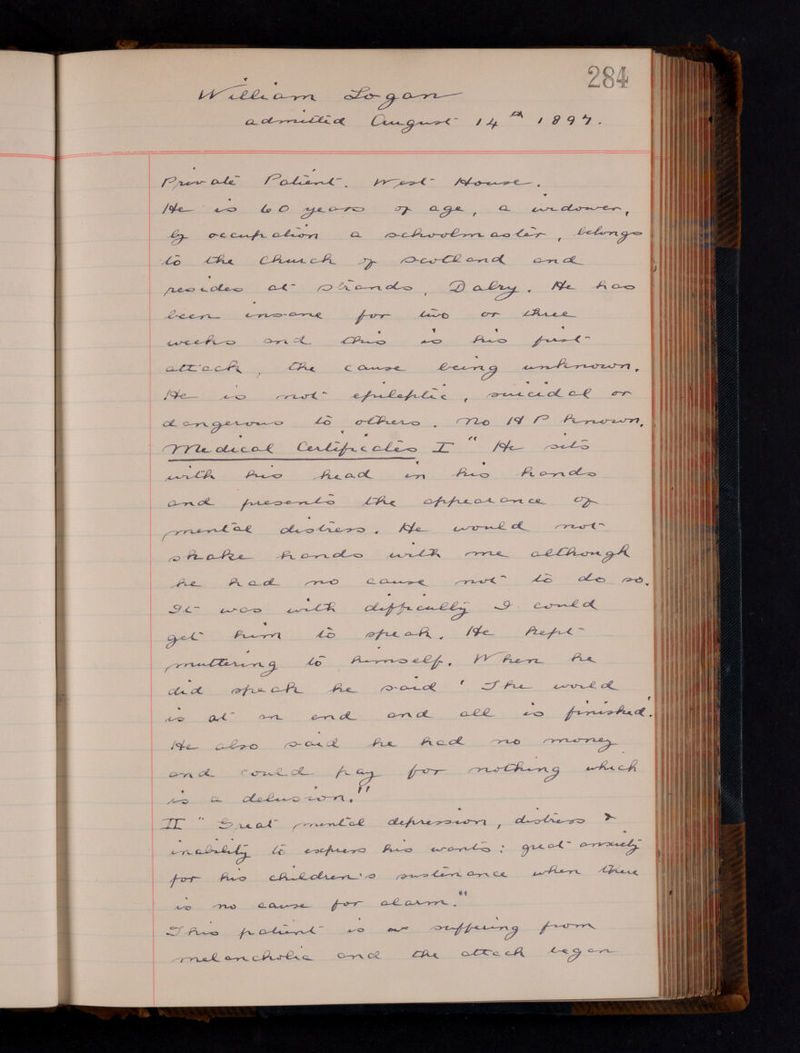 284
William Logan
admitted August 14th 1897.
Private Patient. West House.
He is 60 years of age, a widower,
by occupation a schoolmaster, belongs
to the Church of Scotland and
resides at Strands, Dalry. He has
been insane for two or three
weeks and this is his first
attack, the cause being unknown.
He is not epileptic, suicidal or
dangerous to others. No H P known.
Medical Certificates I "He sits
with his head in his hands
and presents the appearance of
mental distress. He would not
shake hands with me although
he had no cause not to do so.
It was with difficulty I could
get him to speak. He kept
muttering to himself. When he
did speak he said 'The world
is at an end and all is finished.'
He also said he had no money
and could pay for nothing which
is a delusion."
II "Great mental depression, distress &
inability to express his wants: great anxiety
for his children's sustenance when there
is no cause for alarm."
This patient is suffering from
melancholia and the attack began